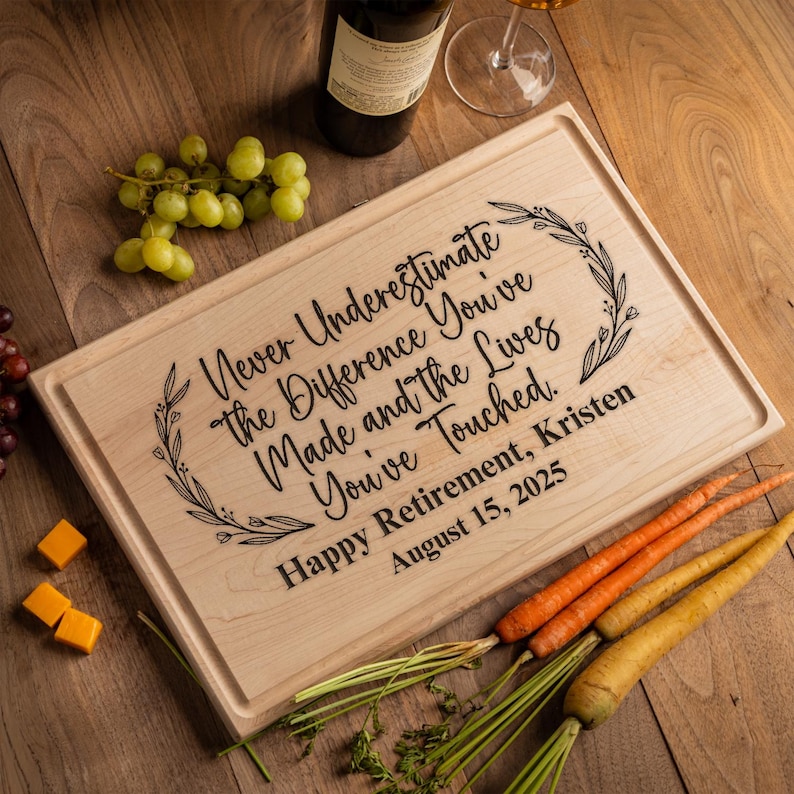 Never Underestimate
the Difference You've
Made and the Lives
You've Touched.
Happy Retirement, Kristen
August 15, 2025